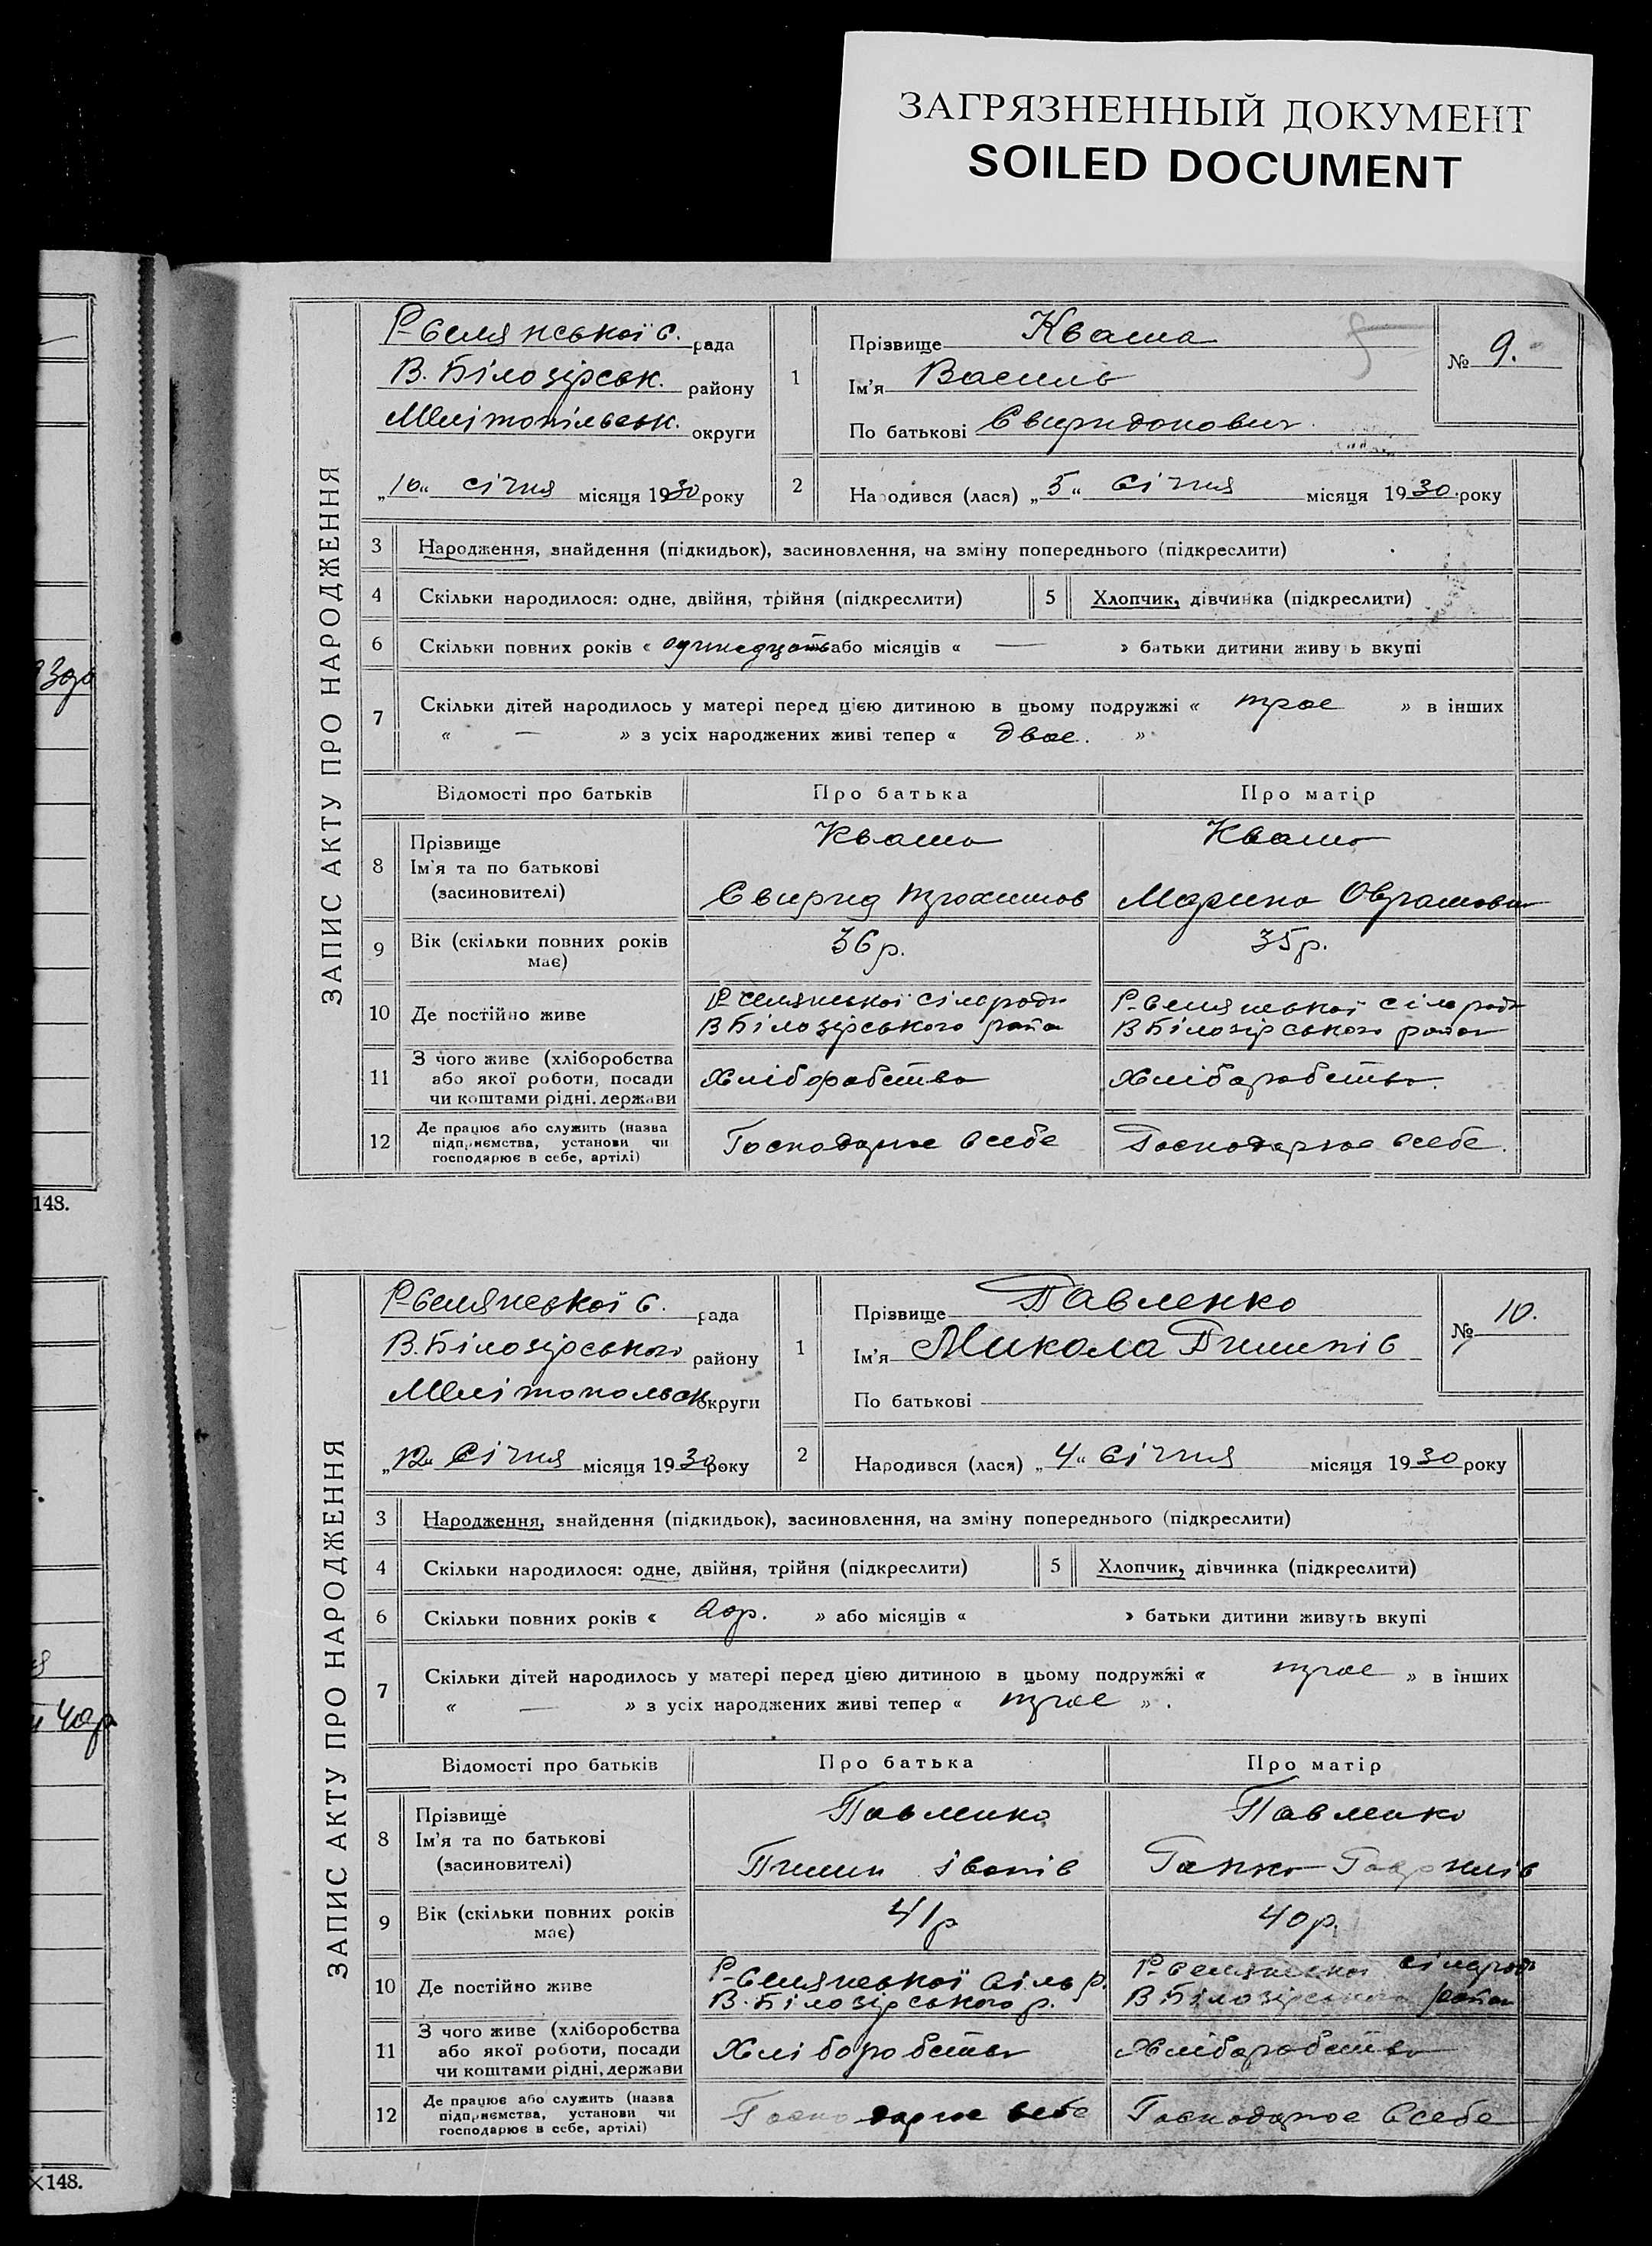 ЗАГРЯЗНЕННЫЙ ДОКУМЕНТ
SOILED DOCUMENT
ЗАПИС АКТУ ПРО НАРОДЖЕННЯ
Р-Селянської с. рада
В. Білозірськ. району
Мелітопільськ. округи
„10“ січня місяця 1930 року
1
Прізвище Кваша
Ім'я Василь
По батькові Свиридонович
№ 9.
2
Народився (лася) „5“ Січня місяця 1930 року
3 Народження, знайдення (підкидьок), засиновлення, на зміну попереднього (підкреслити)
4 Скільки народилося: одне, двійня, трійня (підкреслити)
5 Хлопчик, дівчинка (підкреслити)
6 Скільки повних років « одинадцать або місяців « — » батьки дитини живуть вкупі
7 Скільки дітей народилось у матері перед цією дитиною в цьому подружжі « троє » в інших
« — » з усіх народжених живі тепер « двоє. »
Відомості про батьків
Про батька
Про матір
8 Прізвище
Ім'я та по батькові
(засиновителі)
Кваша
Свирид Трохимов
Кваша
Марина Овра
9 Вік (скільки повних років
має)
36 р.
35 р.
10 Де постійно живе
Р Селянської сільради
В Білозірського райо
Р-Селянської сільради
В Білозірського
11 З чого живе (хліборобства
або якої роботи, посади
чи коштами рідні, держави
Хліборобство
Хліборобство.
12 Де працює або служить (назва
підприємства, установи чи
господарює в себе, артілі)
Господарює в себе
Господарює в себе.
148.
ЗАПИС АКТУ ПРО НАРОДЖЕННЯ
Р-Селянської с. рада
В. Білозірського району
Мелітопольськ округи
„12“ Січня місяця 1930 року
1
Прізвище Павленко
Ім'я Микола Пимпів
По батькові
№ 10.
2
Народився (лася) „4“ Січня місяця 1930 року
3 Народження, знайдення (підкидьок), засиновлення, на зміну попереднього (підкреслити)
4 Скільки народилося: одне, двійня, трійня (підкреслити)
5 Хлопчик, дівчинка (підкреслити)
6 Скільки повних років « 20р. » або місяців « » батьки дитини живуть вкупі
7 Скільки дітей народилось у матері перед цією дитиною в цьому подружжі « троє » в інших
« — » з усіх народжених живі тепер « троє ».
Відомості про батьків
Про батька
Про матір
8 Прізвище
Ім'я та по батькові
(засиновителі)
Павленко
Пимин Іванів
Павленко
Ганна
9 Вік (скільки повних років
має)
41 р
40 р.
10 Де постійно живе
Р-Селянської Сільр.
В. Білозірського р.
Р-Селянської сільради
В Білозірського
11 З чого живе (хліборобства
або якої роботи, посади
чи коштами рідні, держави
Хліборобство
Хліборобство
12 Де працює або служить (назва
підприємства, установи чи
господарює в себе, артілі)
Господарює в себе
Господарює в себе
×148.